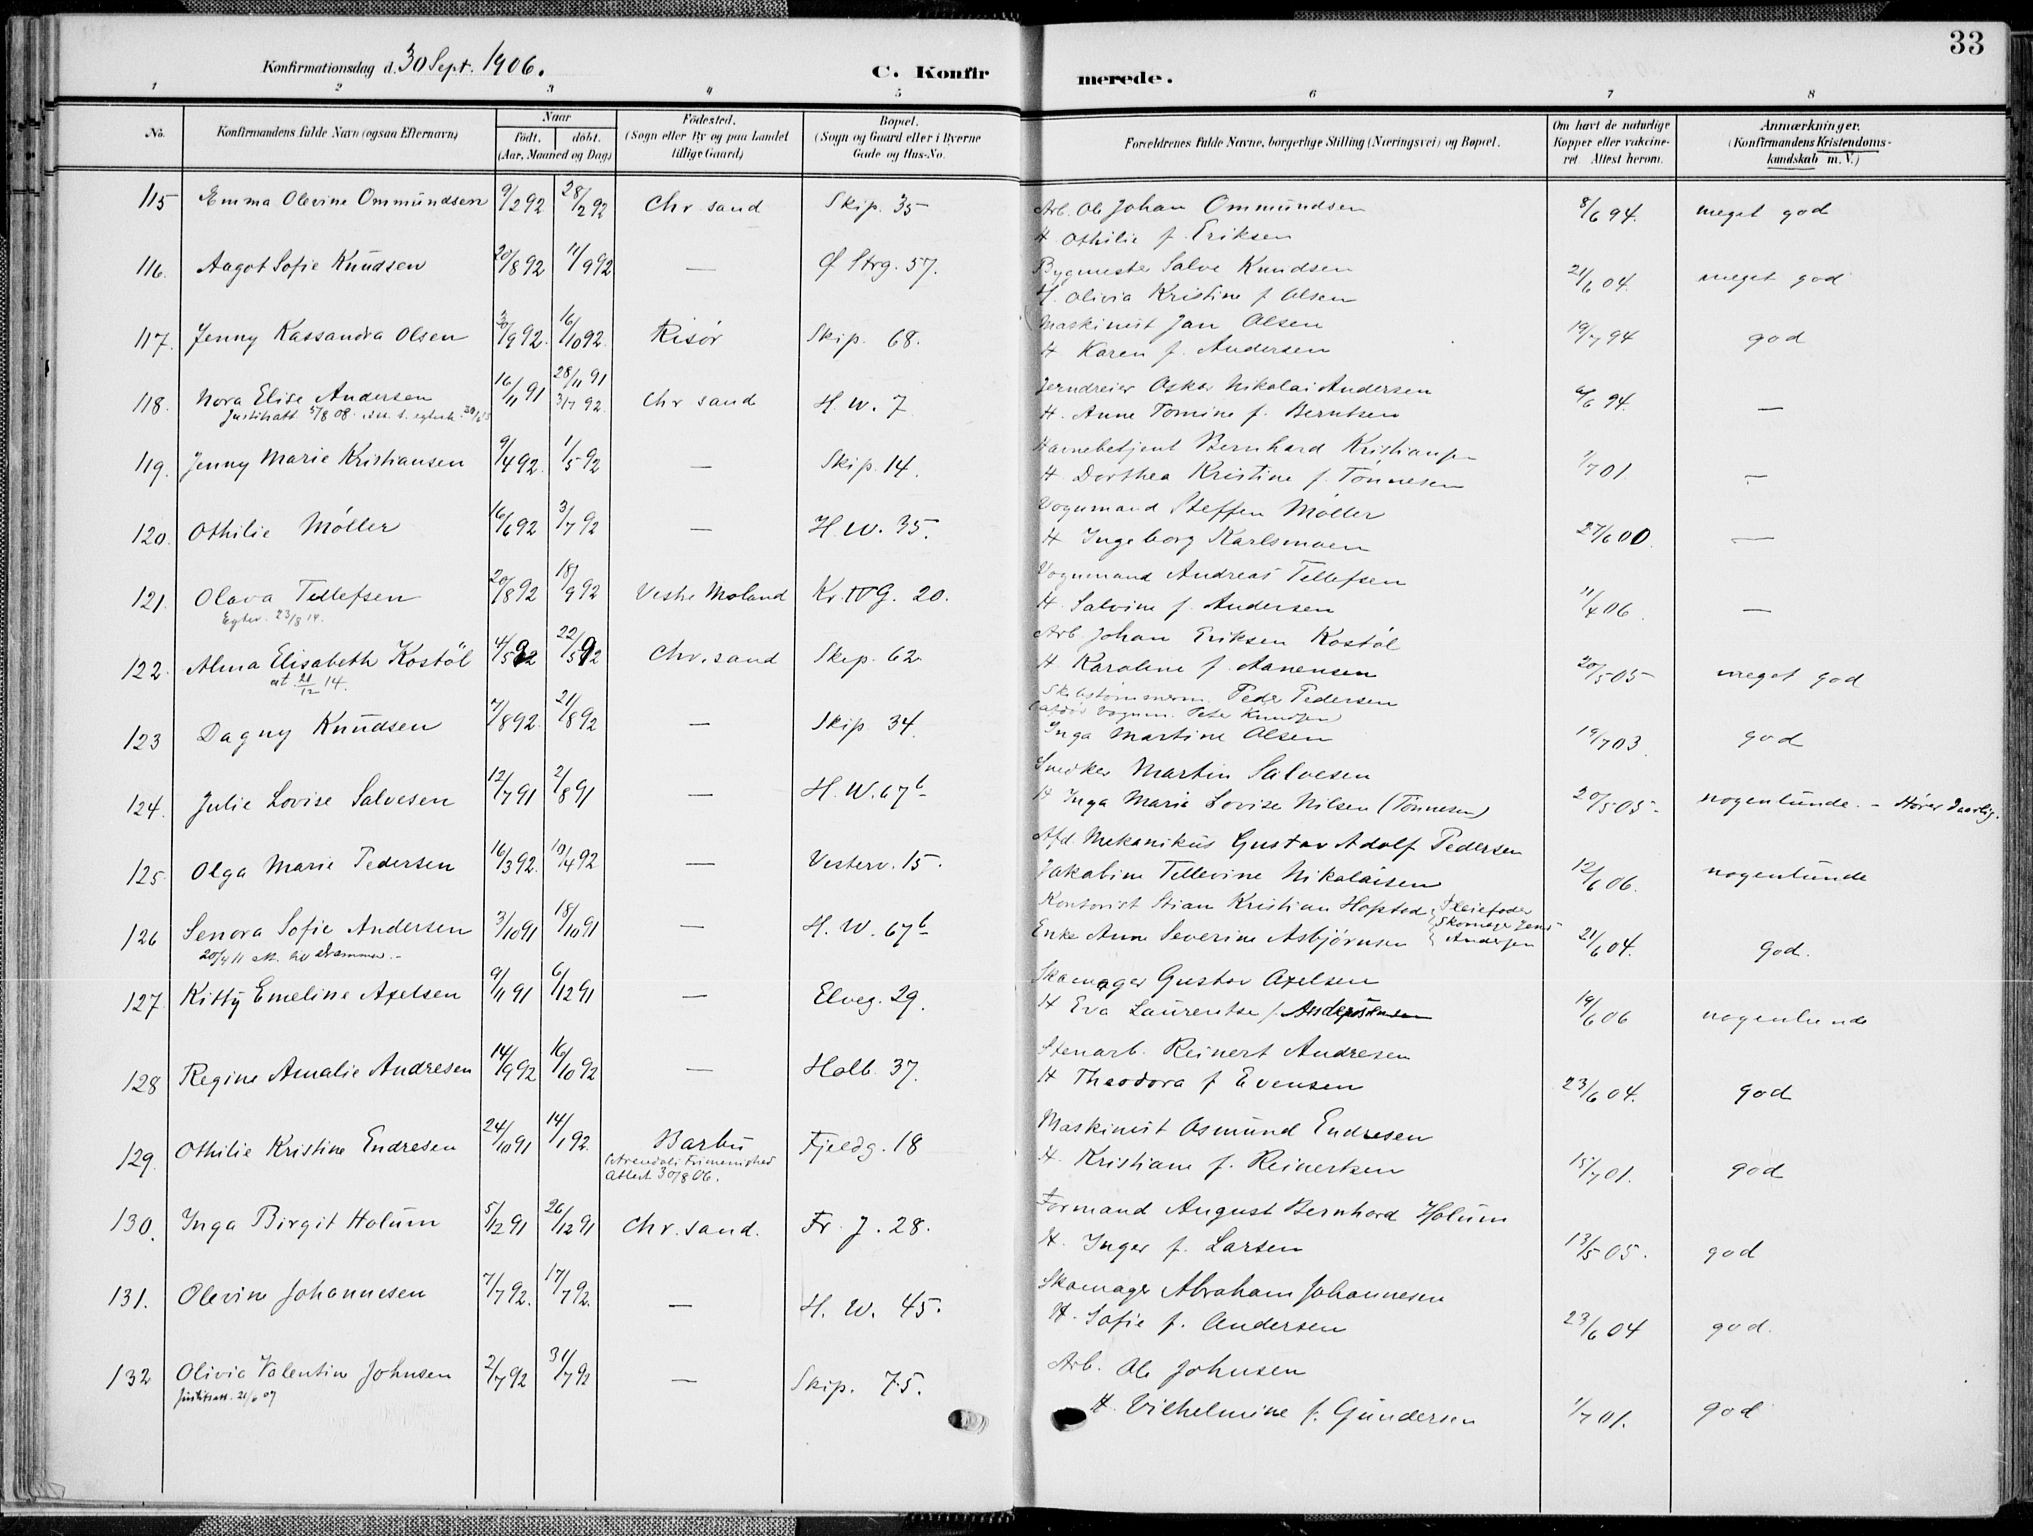 33
Konfirmationsdag d. 30 Sept. 1906.
C. Konfirmerede.
1 2 3 4 5 6 7 8
No.
Konfirmandens fulde Navn (ogsaa Efternavn)
Naar
født. døbt.
(Aar, Maaned og Dag)
Fødested.
(Sogn eller By og paa Landet
tillige Gaard)
Bopæl.
(Sogn og Gaard eller i Byerne
Gade og Hus-No.
Forældrenes fulde Navne, borgerlige Stilling (Næringsvei) og Bopæl.
Om havt de naturlige
Kopper eller vakcine-
ret. Attest herom.
Anmærkninger.
(Konfirmandens Kristendoms-
kundskab m. V.)
115 Emma Olevine Ommundsen 9/2 92 28/2 92 Chr. sand Skip. 35 Arb. Ole Johan Ommundsen 8/6 94. meget god
H. Othilie f. Eriksen
116. Aagot Sofie Knudsen 20/8 92 11/9 92 — Ø Strg. 57. Bygmester Salve Knudsen 21/6 04. meget god
H. Olivia Kristine f. Olsen
117. Jenny Kassandra Olsen 30/9 92. 16/10 92. Risør Skip. 68. Maskinist Jan Olsen 19/7 94 god
H Karen f. Andersen
118. Nora Elise Andersen 16/11 91 28/11 91 3/7 92. Chr sand H. W. 7 Jerndreier Oskar Nikolai Andersen 6/6 94. —
H. Anne Tomine f. Berntsen
119. Jenny Marie Kristiansen 9/4 92. 1/5 92 — Skip. 14. Havnebetjent Bernhard Kristiansen /7 01. —
H. Dorthea Kristine f. Tönnesen
120. Othilie Møller 16/6 92 3/7 92 — H. W. 35. Vognmand Steffen Møller 27/6 00. —
H Ingeborg Karlsmoen
121. Olava Tellefsen 20/8 92 18/9 92 Vestre Moland Kr. IV G. 20. Vognmand Andreas Tellefsen 11/4 06. —
Egtev. 23/8 14. H. Salvine f. Andersen
122. Alma Elisabeth Kostøl 4/5 92 22/5 92 Chr. sand Skip. 62 Arb. Johan Eriksen Kostøl 20/5 05 meget god
at. 21/12 14. H Karoline f. Aanensen
123 Dagny Knudsen 7/8 92. 21/8 92 — Skip. 34. Skibstømmerm. Peder Pedersen 19/7 03. god
Vognm. Peter Knudsen
Inga Martine Olsen
124. Julie Lovise Salvesen 12/7 91 2/8 91 — H. W. 67b Snedker Martin Salvesen 20/5 05. nogenlunde. – Hører daarlig.
H Inga Marie Lovise Nilsen (Tønnesen)
125. Olga Marie Pedersen 16/3 92. 10/4 92 — Vesterv. 15. Afd. Mekanikus Gustav Adolf Pedersen 12/6 06. nogenlunde
Jakobine Tellevine Nikolaisen
126 Senora Sofie Andersen 3/10 91 18/10 91 — H. W. 67b Kontorist Stian Kristian Hopstad Pleiefader 21/6 04. god.
Skomager Jens
Enke Anne Severine Asbjørnsen Andersen
127. Kitty Emeline Axelsen 9/11 91 6/12 91 — Elveg. 29. Skomager Gustav Axelsen 19/6 06 nogenlunde
H Eva Laurentse f.
128 Regine Amalie Andresen 14/9 92 16/10 92 — Holb. 37. Stenarb. Reinert Andresen 23/6 04. god
H Theodora f Evensen
129. Othilie Kristine Endresen 24/10 91 14/1 92. Barbu Fjeldg. 18 Maskinist Osmund Endresen 15/7 01. god
Attest 30/8 06. H. Kristiane f. Reinertsen
130. Inga Birgit Holum 5/12 91 26/12 91 Chr. sand. Fr. J. 28. Formand August Bernhard Holum 13/5 05. god
H. Inger f. Larsen
131. Olevine Johannesen 7/7 92. 17/7 92. — H. W. 45. Skomager Abraham Johannesen 23/6 04 god.
H. Sofie f. Andersen
132 Olivia Valentine Johnsen 2/7 92 31/7 92 — Skip. 75. Arb. Ole Johnsen 1/7 01. god
H. Vilhelmine f. Gundersen